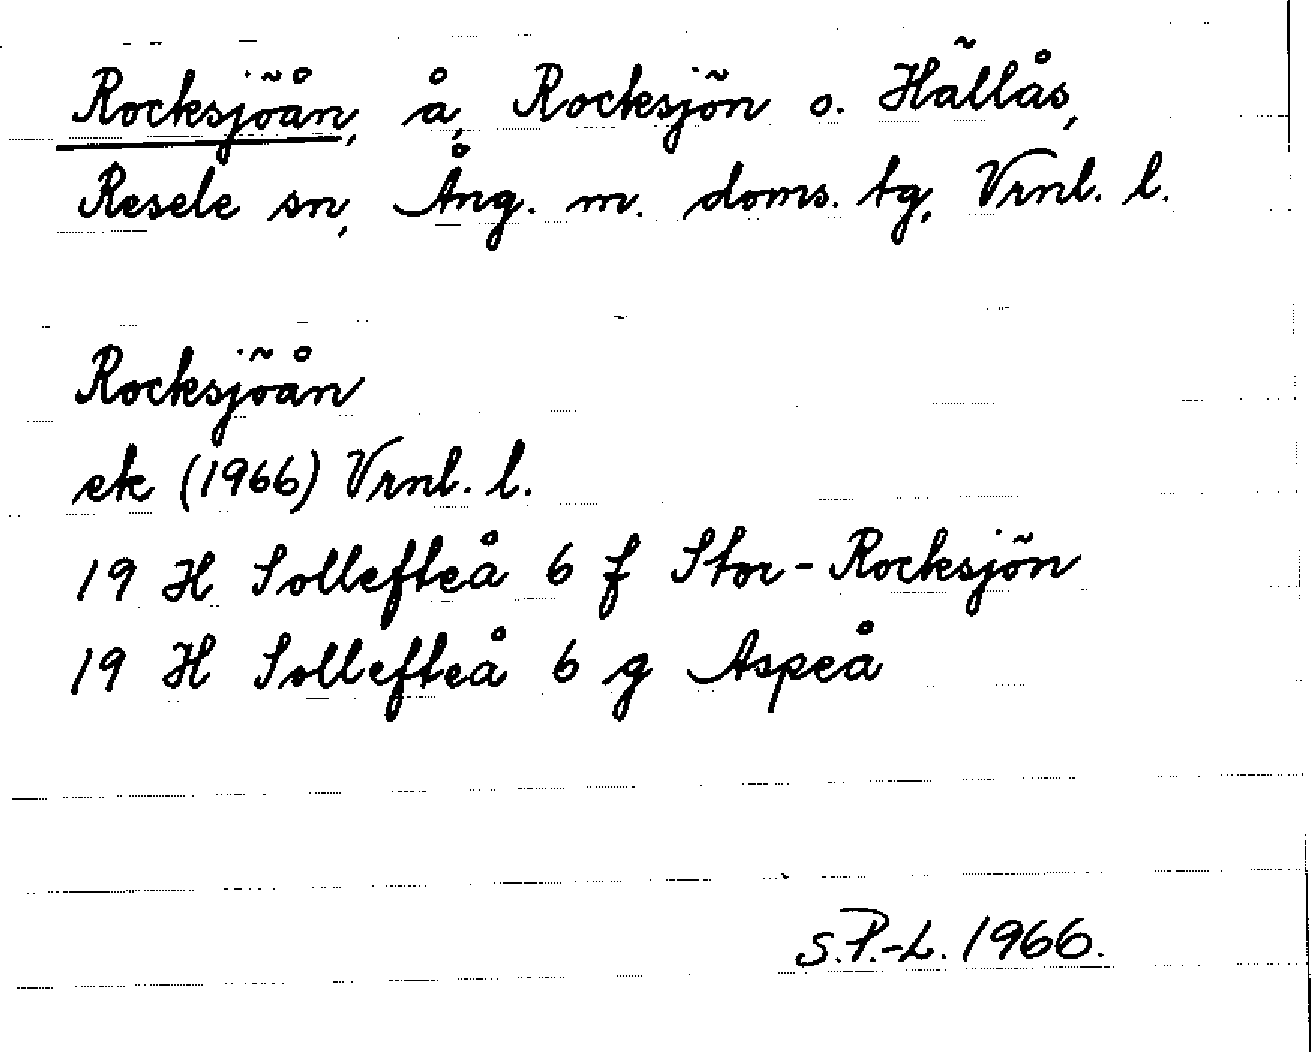 Rocksjöån, å, Rocksjön o. Hällås,
Resele sn, Ång. m. doms. tg, Vrnl. l.
Rocksjöån
ek (1966) Vrnl. l.
19 H Sollefteå 6 f Stor-Rocksjön
19 H Sollefteå 6 g Aspeå
S.P.-L. 1966.